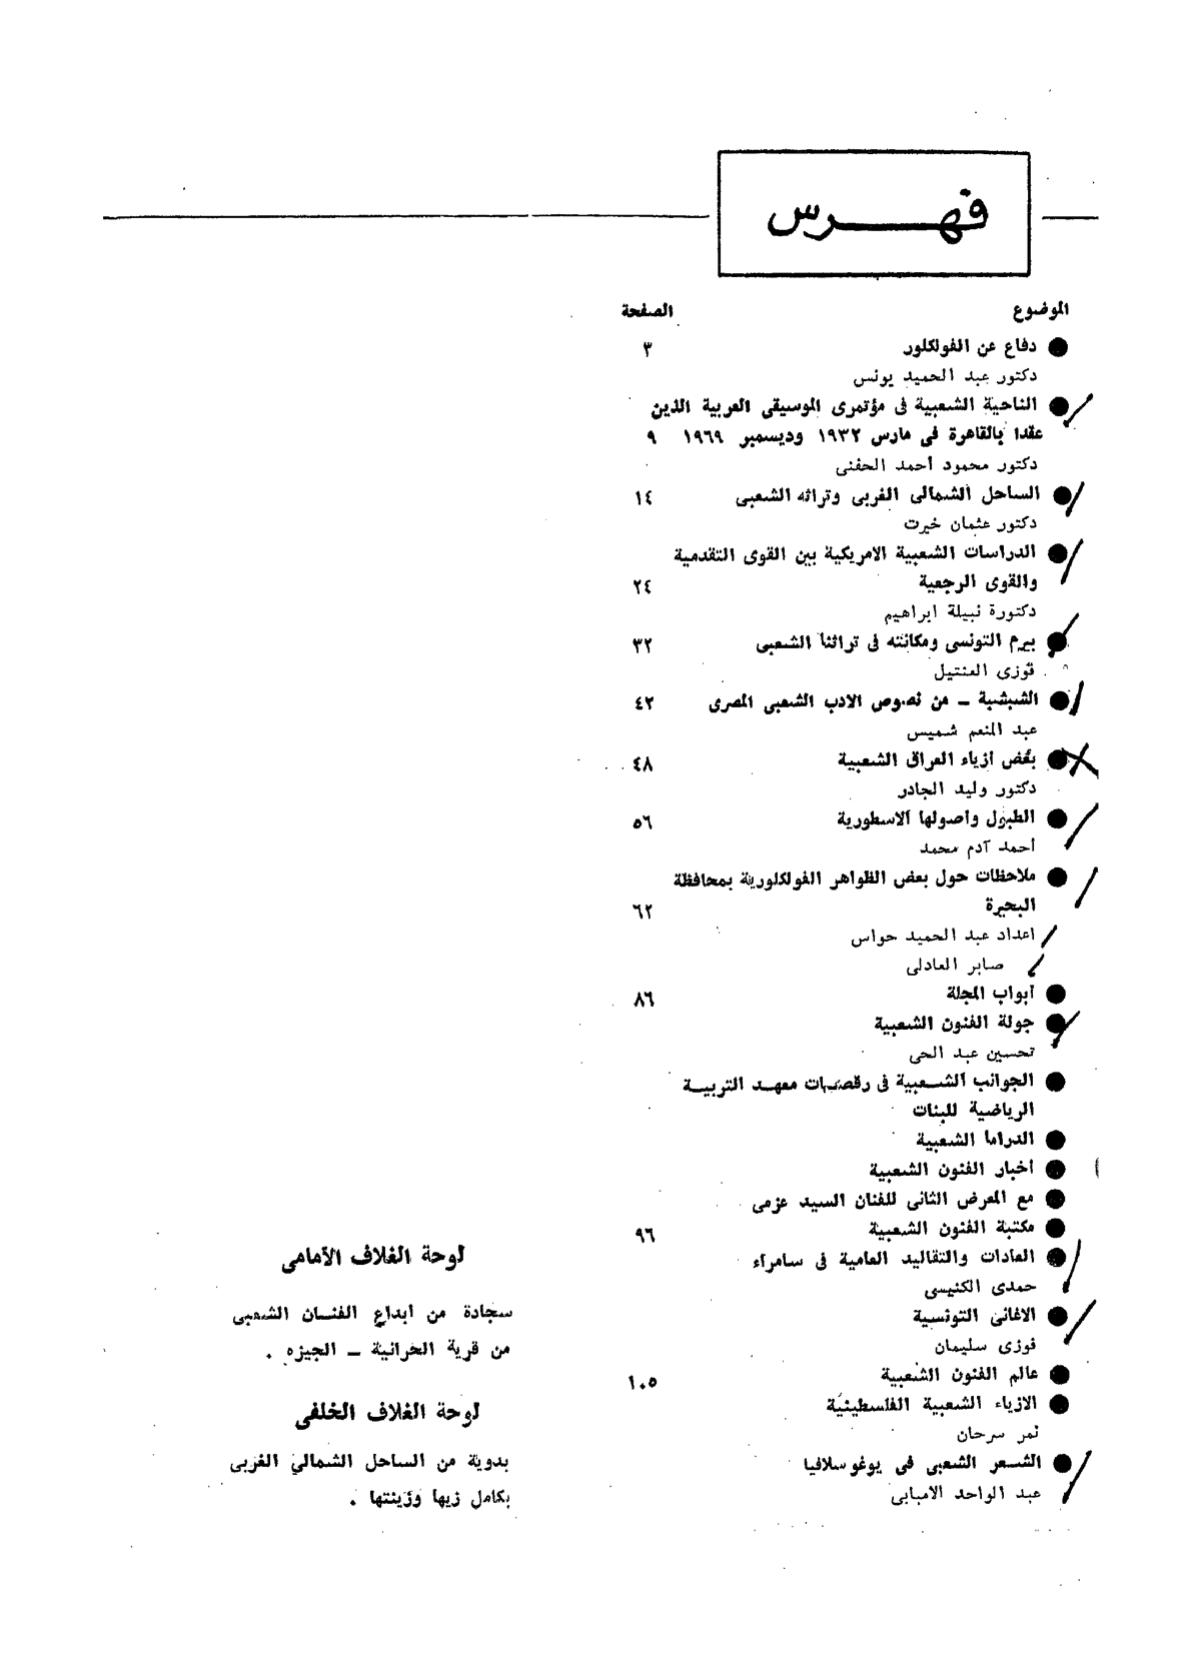 فهرس
الموضوع الصفحة
دفاع عن الفولكلور ٣
دكتور عبد الحميد يونس
الناحية الشعبية فى مؤتمرى الموسيقى العربية الذين
عقدا بالقاهرة فى مارس ١٩٣٢ وديسمبر ١٩٦٩ ٩
دكتور محمود أحمد الحفنى
الساحل الشمالى الغربى وتراثه الشعبى ١٤
دكتور عثمان خيرت
الدراسات الشعبية الامريكية بين القوى التقدمية
والقوى الرجعية ٢٤
دكتورة نبيلة ابراهيم
بيرم التونسى ومكانته فى تراثنا الشعبى ٣٢
فوزى العنتيل
الشبشبة ــ من نصوص الادب الشعبى المصرى ٤٢
عبد المنعم شميس
بعض أزياء العراق الشعبية ٤٨
دكتور وليد الجادر
الطبول وأصولها الاسطورية ٥٦
أحمد آدم محمد
ملاحظات حول بعض الظواهر الفولكلورية بمحافظة
البحيرة ٦٢
اعداد عبد الحميد حواس
صابر العادلى
أبواب المجلة ٨٦
جولة الفنون الشعبية
تحسين عبد الحى
الجوانب الشعبية فى رقصات معهد التربية
الرياضية للبنات
الدراما الشعبية
أخبار الفنون الشعبية
مع المعرض الثانى للفنان السيد عزمى
مكتبة الفنون الشعبية ٩٦
العادات والتقاليد العامية فى سامراء
حمدى الكنيسى
الاغانى التونسية
فوزى سليمان
عالم الفنون الشعبية ١٠٥
الازياء الشعبية الفلسطينية
نمر سرحان
الشعر الشعبى فى يوغوسلافيا
عبد الواحد الامبابى
لوحة الغلاف الأمامى
سجادة من ابداع الفنان الشعبى
من قرية الحرانية ــ الجيزه .
لوحة الغلاف الخلفى
بدوية من الساحل الشمالى الغربى
بكامل زيها وزينتها .